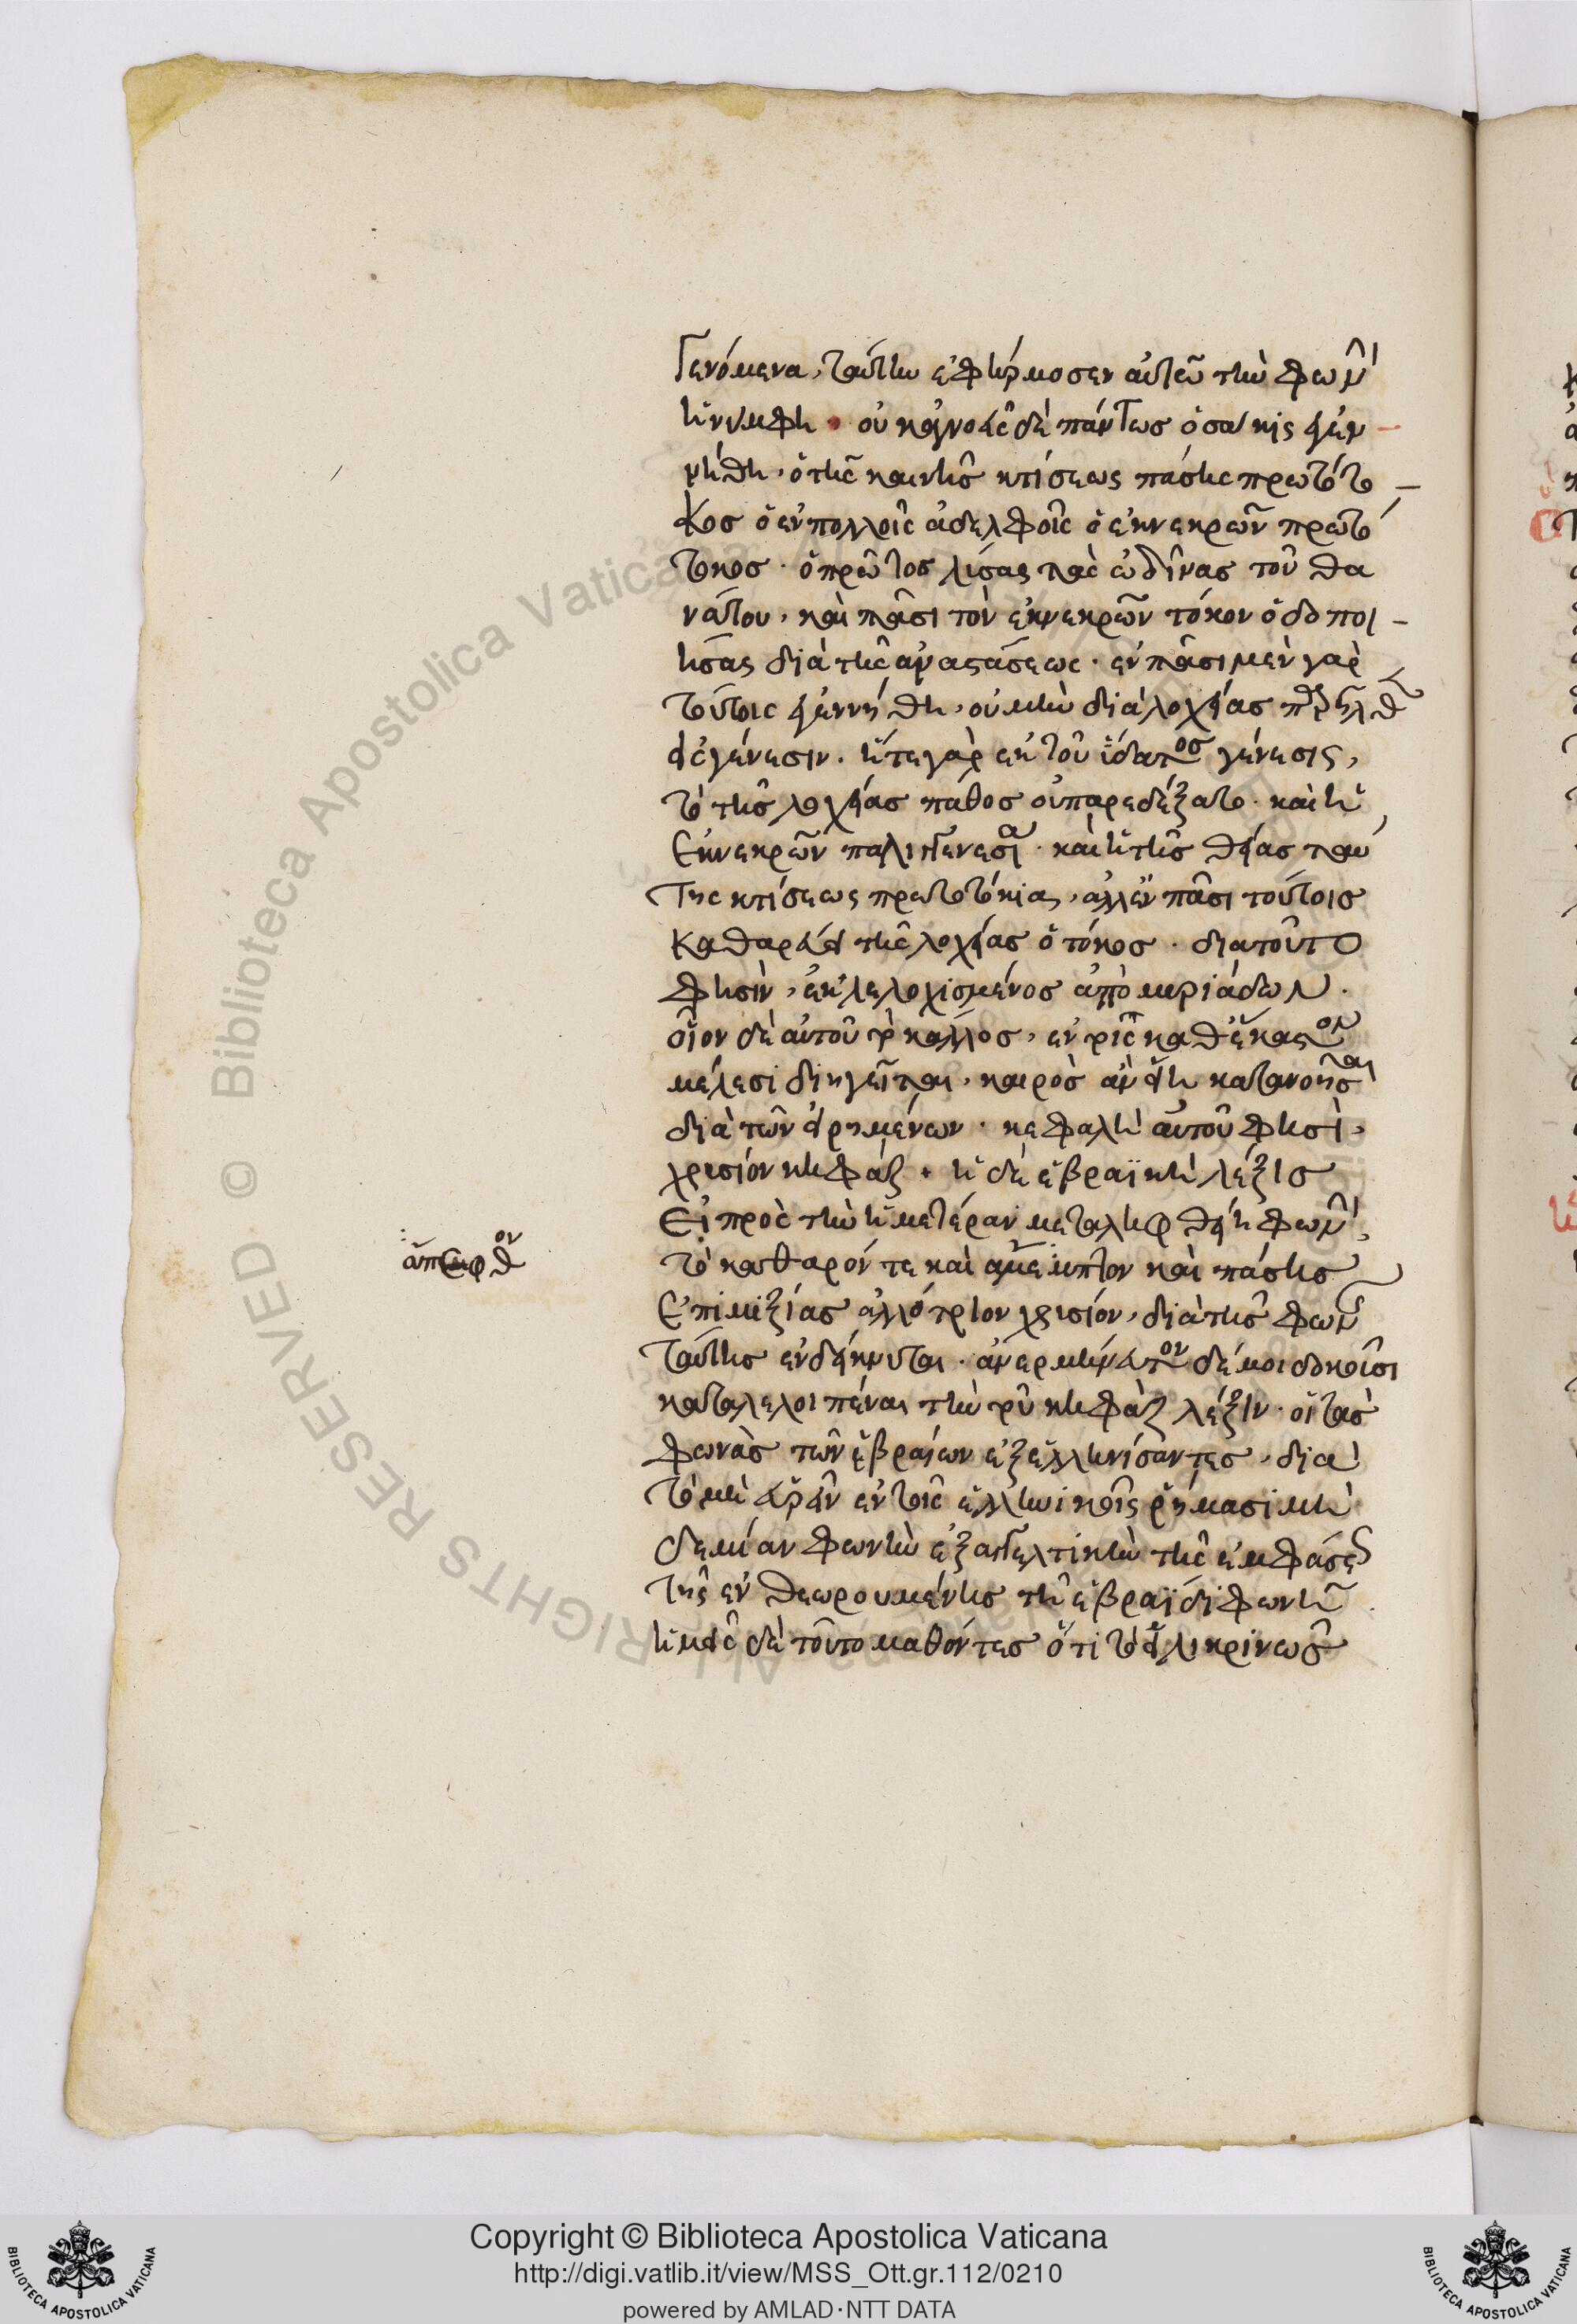 Γενόμενα, ταύτην ἐφήρμοσεν αὐτῶ τὴν φωνὴν
ἡ νύμφη · οὐκ ἀγνοεῖς δὲ πάντως ὁσακις γεν
νήθη, ὁ τῆς καινῆς κτίσεως πάσης πρωτότο
κος ὁ ἐν πολλοῖς ἀδελφοῖς ὁ ἐκ νεκρῶν πρωτό
τοκος · ὁ πρῶτος λύσας τὰς ὠδῖνας τοῦ θα
νάτου, καὶ πᾶσι τὸν ἐκ νεκρῶν τόκον ὁδοποι
ήσας διὰ τῆς ἀναστάσεως · ἐν πᾶσι μὲν γὰρ
τούτοις γεννήθη, οὐ μὴν διὰ λοχείας παρῆλθεν
εἰς γένεσιν · ἥ τε γὰρ ἐκ τοῦ ὕδατος γένεσις,
τὸ τῆς λοχείας πάθος οὐ παρεδέξατο · καὶ ἡ
ἐκ νεκρῶν παλιγγενεσία · καὶ ἡ τῆς θείας ταύ
της κτίσεως πρωτοτόκια, ἀλλ' ἐν πᾶσι τούτοις
καθαρεύει τῆς λοχείας ὁ τόκος · διατοῦτο
φησὶν, ἐκλελοχισμένος ἀπὸ μυριάδων ·
οἷον δὲ αὐτοῦ τὸ κάλλος, ἐν τοῖς καθέκαστον
μέλεσι διηγεῖται, καιρὸς ἂν εἴη κατανοῆσαι
διὰ τῶν εἰρημένων · κεφαλὴ αὐτοῦ φησὶ,
χρυσίον κηφάζ · ἡ δὲ ἑβραϊκὴ λέξις
εἰ πρὸς τὴν ἡμετέραν μεταληφθείη φωνὴν,
τὸ καθαρόν τε καὶ ἄμεμπτον καὶ πάσης
ἐπιμιξίας ἀλλότριον χρυσίον, διὰ τῆς φωνῆς
ταύτης ἐνδείκνυται · ἀνερμήνευτον δέ μοι δοκοῦσι
καταλελοιπέναι τὴν τοῦ κηφὰζ λέξιν · οἱ τὰς
φωνὰς τῶν ἑβραίων ἐξελληνίσαντες, διὰ
τὸ μὴ εὑρεῖν ἐν τοῖς ἑλληνικοῖς ῥήμασι μη
δεμίαν φωνὴν ἐξαγγελτικὴν τῆς ἐμφάσεως
τῆς ἐνθεωρουμένης τῇ ἑβραΐδι φωνῇ
ἡμεῖς δὲ τοῦτο μαθόντες ὅτι τὸ εἰλικρινῶς
Copyright © Biblioteca Apostolica Vaticana
http://digi.vatlib.it/view/MSS_Ott.gr.112/0210
powered by AMLAD·NTT DATA
BIBLIOTECA APOSTOLICA VATICANA
BIBLIOTECA APOSTOLICA VATICANA